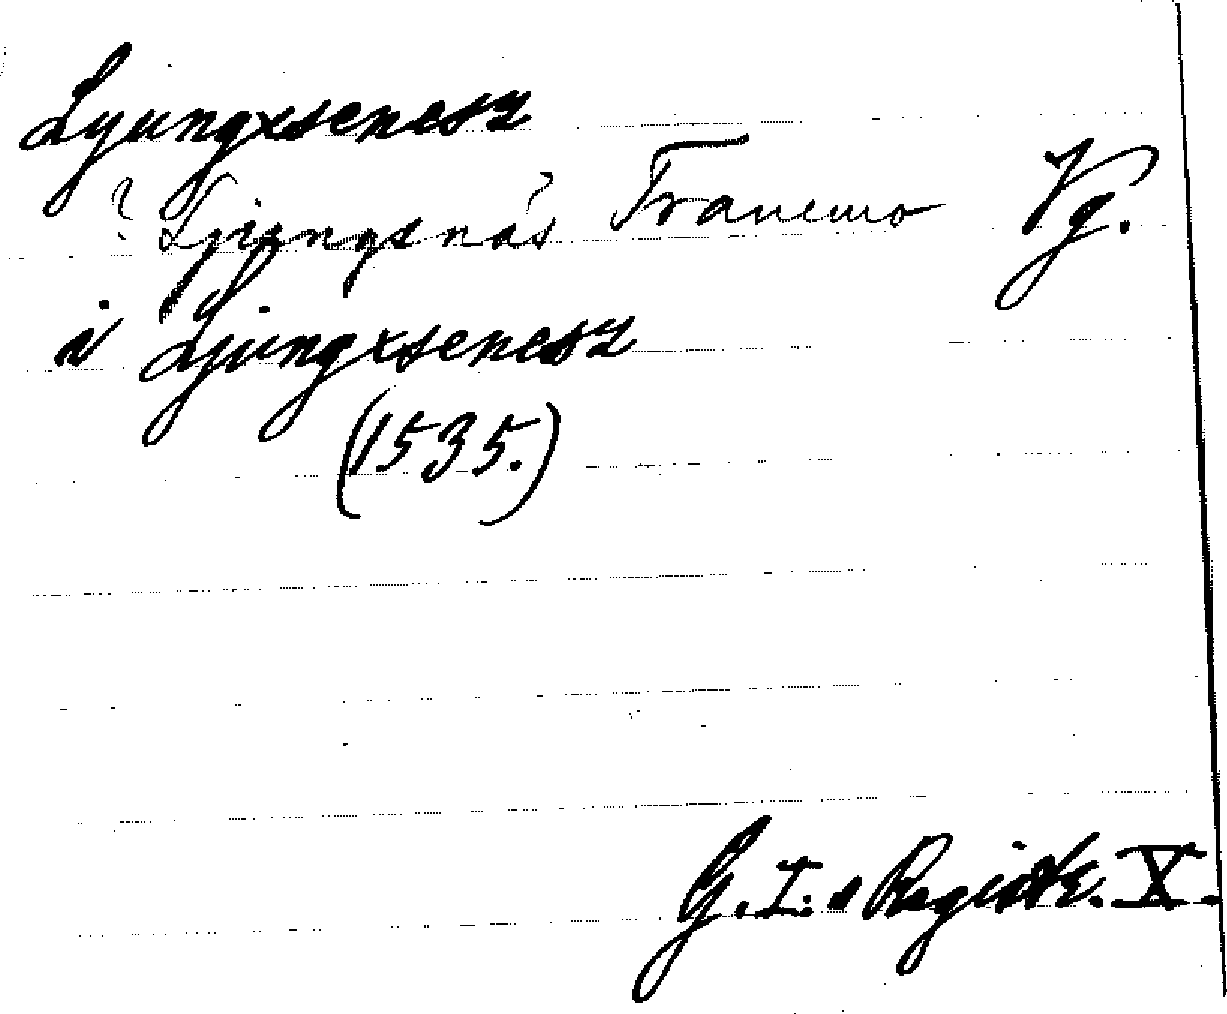 Lyungxsenesz
? Ljungsnäs ? Tranemo Vg.
i Ljungxsenesz
(1535.)
G. I:s Registr. X.